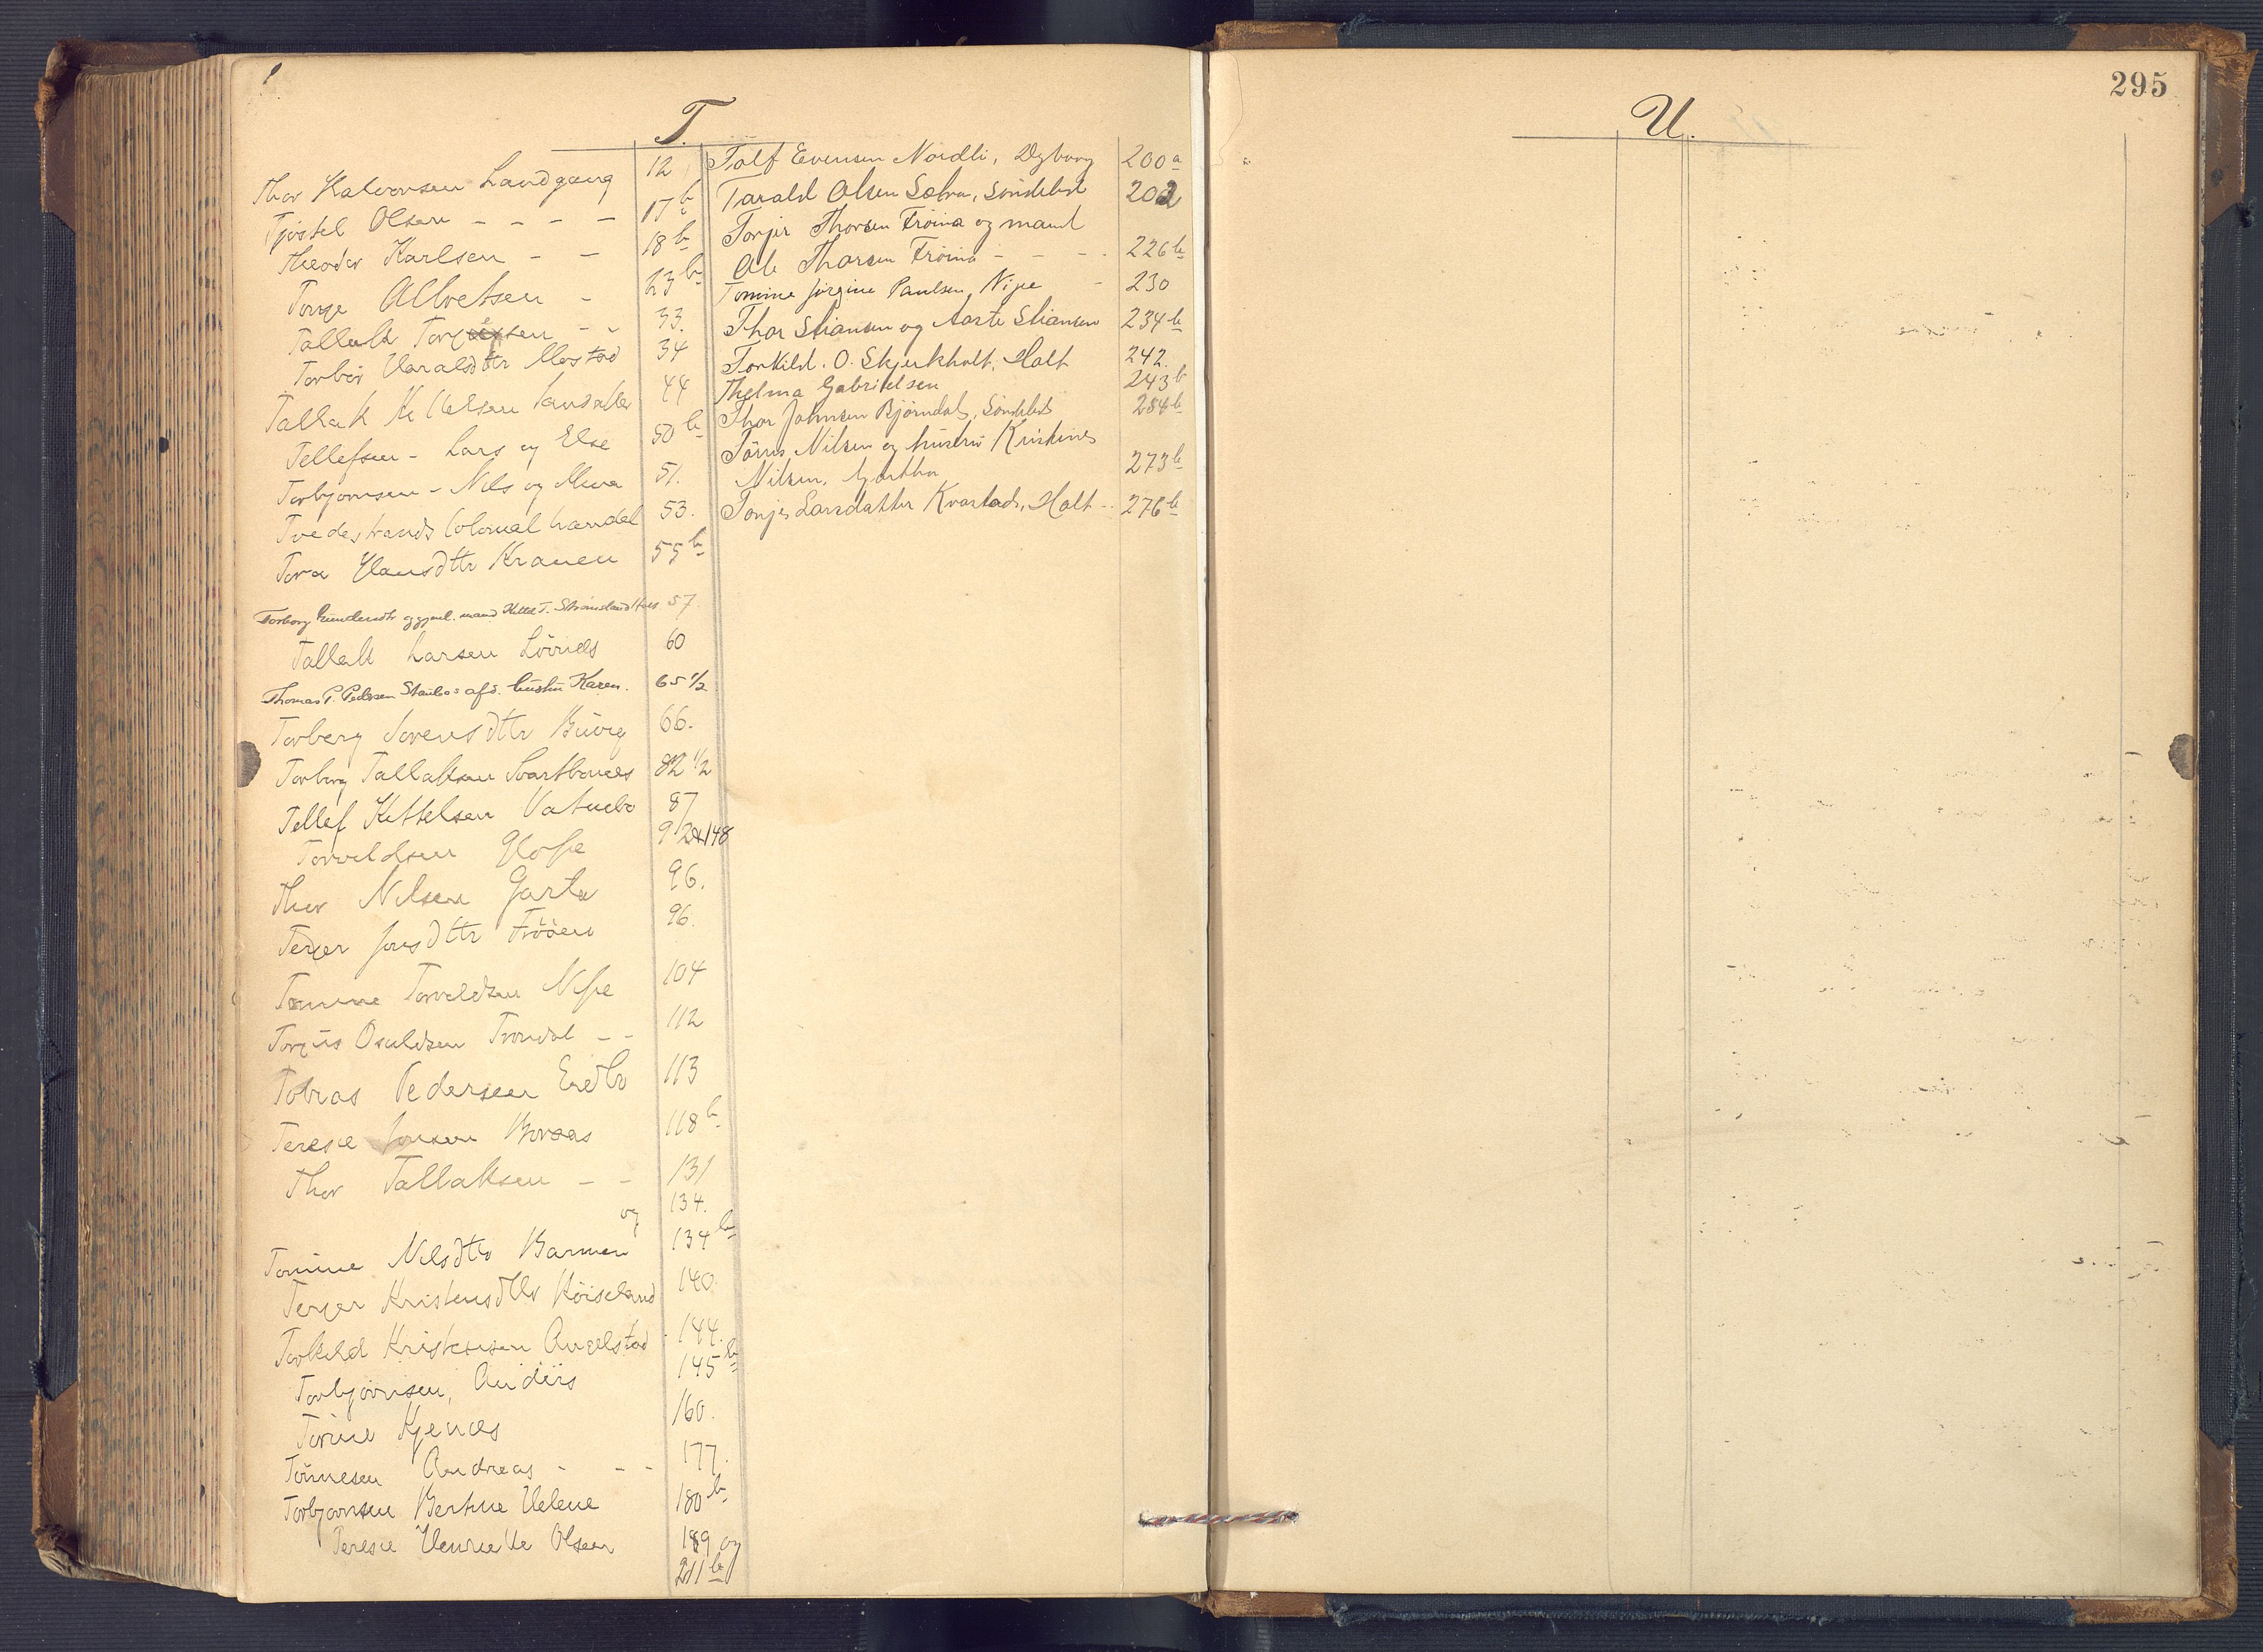 T.
Thor Halvorsen Landgang 12
Tjøstel Olsen - - - - 17 b
Theodor Karlsen - - 18 b
Torge Alvetsen - 23 b
Tallak - - 33.
Torbør Haraldsdtr Mostad 34
Tallak Kittelsen 44
Tellefsen - Lars og Else 50 b
Torbjørnsen - Nils og 51.
Tvedestrands Colonial handel 53.
Tora Hansdtr Kranen 55 b
Torborg Gundersdtr og gjenl. mand T. Strømsland Holt 57.
Tallak Larsen Løvnes 60
Thomas P. Pedersen Staubø: afd. hustru Karen. 65 1/2
Torberg Sørensdtr 66.
Torberg Tallaksen Svartbones 82 1/2
Tellef Kittelsen Vatnebo 87
Torvaldsen Glope 92 148
Thor Nilsen Garta 96.
Terjer Jonsdttr Frøien 96.
Tomine Torvaldsen Nipe 104
Torjus Osuldsen Trondal - - 112
Tobias Pedersen 113
Teresie Jonsen Boraas 118 b
Thor Tallaksen - - 131
og 134.
Tomine Nilsdtr Barmen 134 b
Terjer Kristensdttr Høiseland 140
Torkild Kristensen Angelstad 144.
Torbjørnsen, Anders 145 b
Torine Gjenæs 160.
Tønnesen Andreas - - - 177.
Torbjørnsen Bertine Helene 180 b
Teresie Henriette Olsen 189 og
211 b
Talf Evensen Nordli, Dybvaag 200 a
Tarald Olsen Sætra, Søndeled 202
Torjer Thorsen Frøina og mand
Ole Thorsen Frøina - - - - 226 b
Tomine Jørgine Paulsen Nipe - 230
Thor Stiansen og Aaste Stiansen 234 b
Torkild. O. Skjerkholt, Holt 242.
Thelma Gabrielsen 243 b
Thor Johnsen Bjørndal, Søndeled 284 b
Tørres Nilsen og hustru Kristine
Nilsen, Gjerthn 273 b
Tonje Larsdatter Kvastad, Holt - 276 b
295
U.